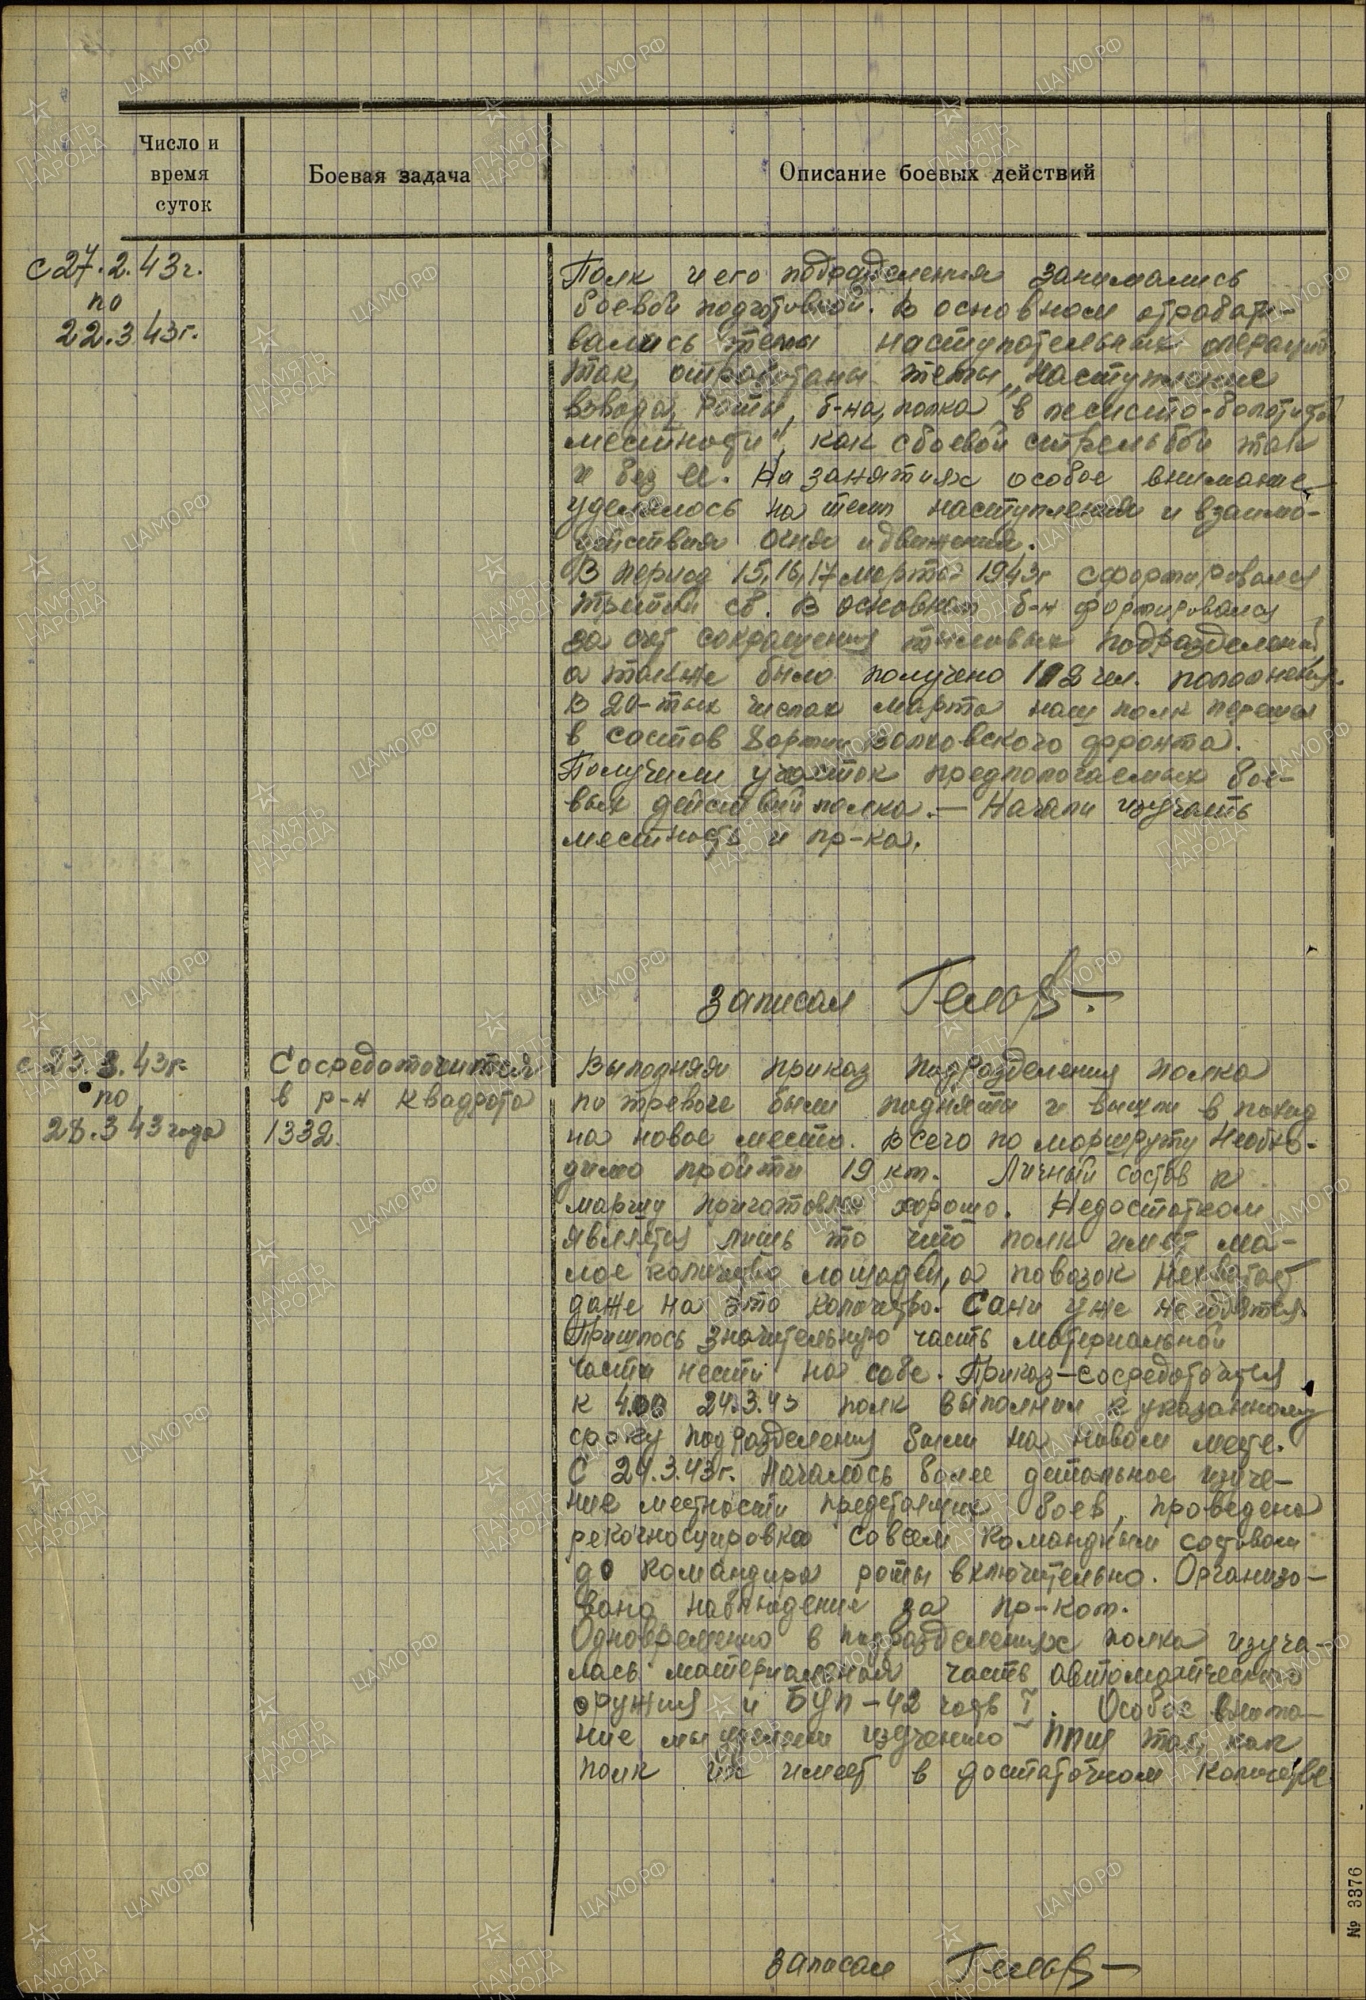 Число и
время
суток
Боевая задача
Описание боевых действий
с 27.2.43г.
по
22.3.43г.
Полк и его подразделения занимались
боевой подготовкой. В основном отрабаты-
вались темы наступательных операций
так, отработаны темы „Наступление
взвода, роты, б-на, полка в лесисто-болотистой
местности", как с боевой стрельбой так
и без ее. На занятиях особое внимание
уделялось на темп наступления и взаимо-
действия огня и движения.
В период 15,16,17 марта 1943г сформировался
третий сб. В основном б-н формировался
за счет сокращения тыловых подразделений,
а также было получено 112 чел. пополнения.
В 20-тых числах марта наш полк перешел
в состав 8 армии Волховского фронта.
Получили участок предполагаемых бое-
вых действий полка. — Начали изучать
местность и пр-ка.
записал
с 23.3.43г.
по
28.3 43 года
Сосредоточится
в р-н квадрата
1332.
Выполняя приказ подразделения полка
по тревоге были подняты и вышли в поход
на новое место. Всего по маршруту необхо-
димо пройти 19 км. Личный состав к
маршу приготовлен хорошо. Недостатком
является лишь то что полк имеет ма-
лое количество лошадей, а повозок нехватает
даже на это количество. Сани уже негодятся.
Пришлось значительную часть материальной
части нести на себе. Приказ-сосредоточится
к 4.00 24.3.43 полк выполнил к указанному
сроку подразделения были на новом месте.
С 24.3.43г. началось более детальное изуче-
ние местности предстоящих боев, проведена
рекогносцировка со всем командным составом
до командира роты включительно. Организо-
вано наблюдение за пр-ком.
Одновременно в подразделениях полка изуча-
лась материальная часть автоматического
оружия и БУП-42 часть I. Особое внима-
ние мы уделяли изучению ППШ так, как
полк их имеет в достаточном количестве
записал
№ 3376
ЦАМО.РФ
ПАМЯТЬ
НАРОДА